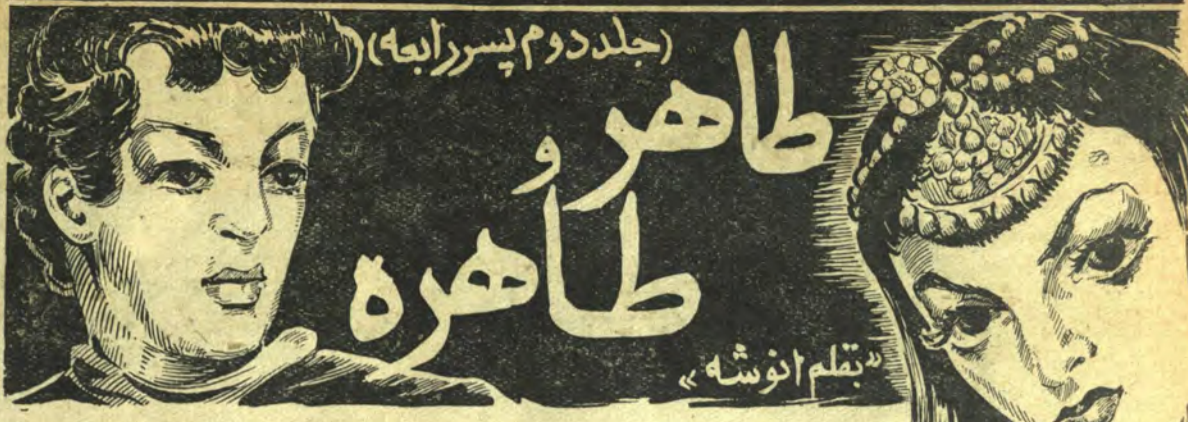 (جلد دوم پسر رابعه)
طاهر
و
طاهره
«بقلم انوشه»